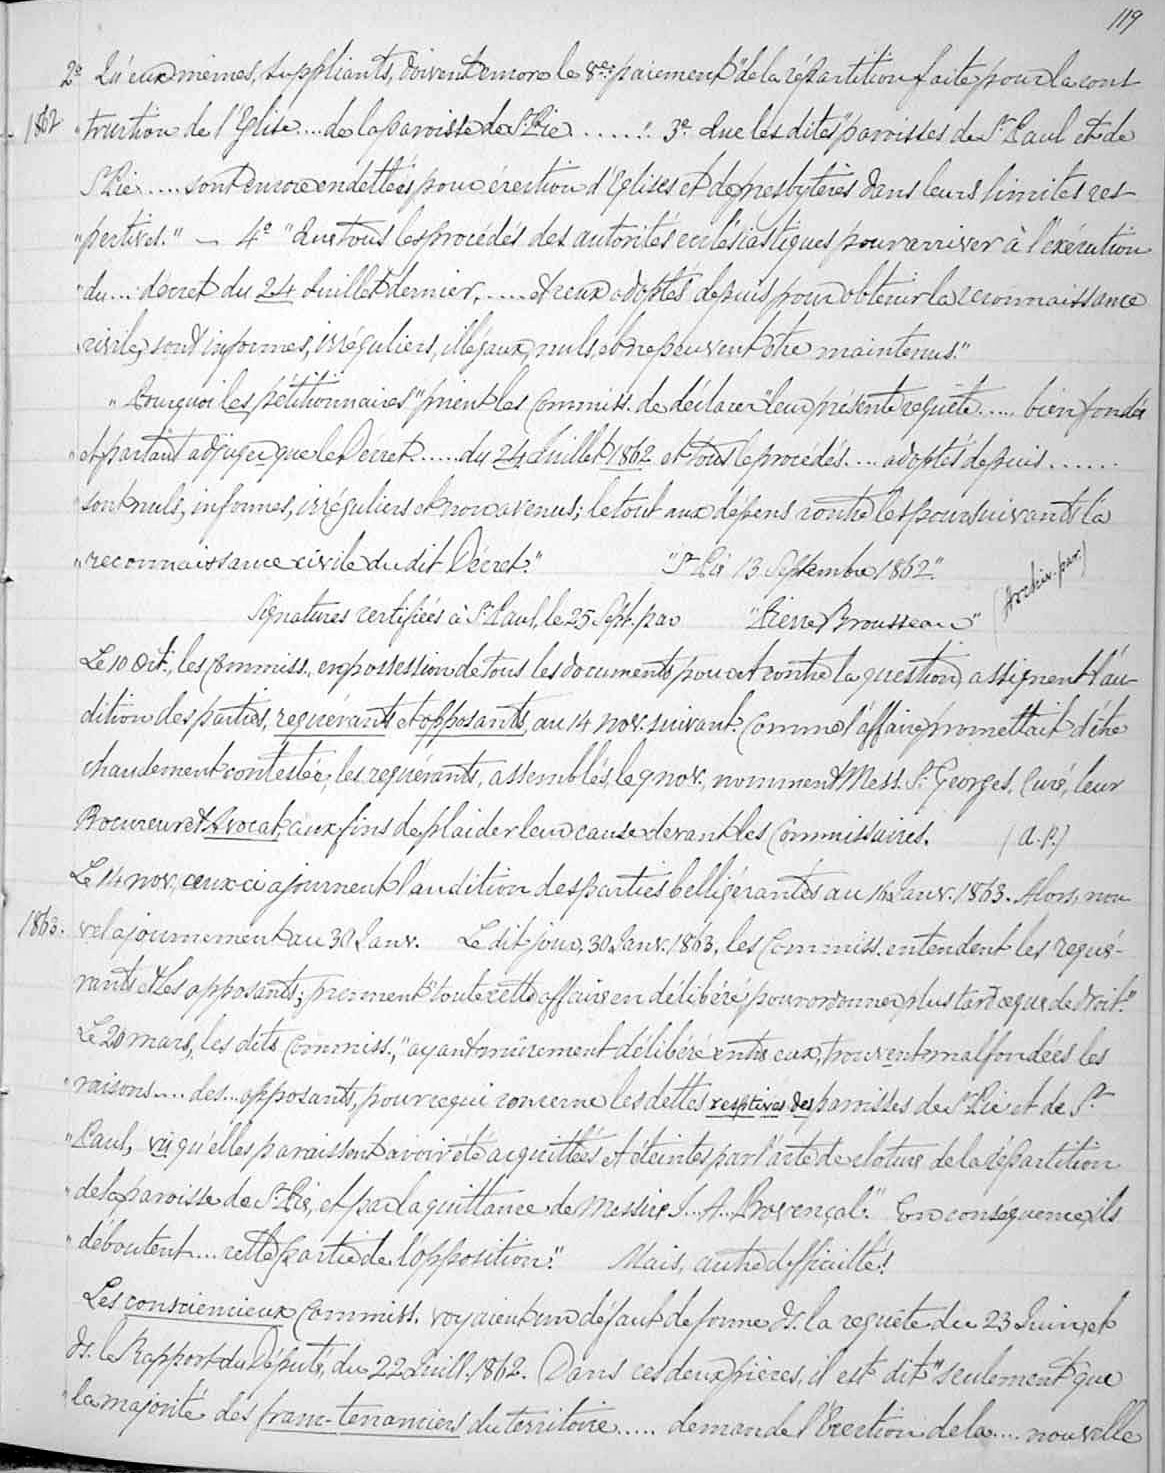 119
2° Qu'eux mêmes, suppliants, doivent encore le 8e paiement "de la répartition faite pour la cons
1862 "truction de l'Eglise .... de la paroisse de St Pie ......". 3° Que les dites "paroisses de St Paul et de
St Pie .... sont encore endettées pour érection d'Eglises et de presbytères dans leurs limites res-
"pectives." — 4° "Que tous les procédés des autorités ecclésiastiques pour arriver à l'exécution
"du ... décret du 24 Juillet dernier, ..... et ceux adoptés depuis pour obtenir la reconnaissance
"civile, sont informes, irréguliers, illégaux, nuls, et ne peuvent être maintenus."
"Pourquoi les pétitionnaires" prient les Commiss. de déclarer "leur présente requête ..... bien fondée
"et partant adjuger que le Décret ...... du 24 Juillet 1862 et tous le procédés .... adoptés depuis ......
"sont nuls, informes, irréguliers et non avenus; le tout aux dépens contre les poursuivants la
"reconnaissance civile du dit Décret." "St Pie 13 Septembre 1862."
Signatures certifiées à St Paul, le 25 Sept. par "Pierre Brousseau" (Archiv. par.)
Le 10 Oct., les Commiss., en possession de tous les documents pour et contre la question, assignent l'au-
dition des parties, requérants et opposants, au 14 nov. suivant. Comme l'affaire promettait d'être
chaudement contestée, les requérants, assemblés, le 9 nov., nomment Mess. St Georges, Curé, leur
Procureur et Avocat, aux fins de plaider leur cause devant les Commissaires. (A.P.)
Le 14 nov., ceux-ci ajournent l'audition des parties belligérantes au 16 Janv. 1863. Alors, nou
1863. vel ajournement au 30 Janv. Le dit jour, 30 Janv. 1863, les Commiss. entendent les requé-
rants et les opposants; prennent "toute cette affaire en délibéré pour ordonner plus tard ce que de droit."
Le 20 mars, les dits Commiss., "ayant mûrement délibéré entre eux, trouvent mal fondées les
"raisons .... des ... opposants, pour ce qui concerne les dettes resptives des paroisses de St Pie et de St
"Paul, vu qu'elles paraissent avoir été acquittées et éteintes par l'acte de cloture de la répartition
"de la paroisse de St Pie, et par la quittance de Messire J. A. Provençal." En conséquence, ils
"déboutent ... cette partie de l'opposition." Mais, autre difficulté!
Les consciencieux Commiss. voyaient un défaut de forme ds. la requête du 23 Juin, et
ds. le Rapport du Député, du 22 Juill. 1862. Dans ces deux pièces, il est dit "seulement que
"la majorité des franc-tenanciers du territoire ..... demande l'Erection de la .... nouvelle